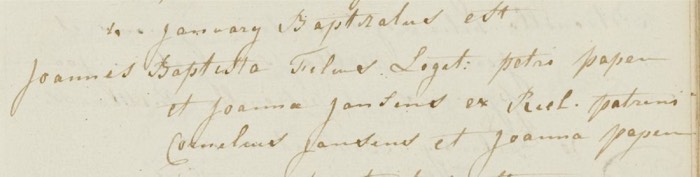 January Baptisatus est
Joannes Baptista Filius Legit: petri papen
et Joanna Jansens ex Reel. patrini
Cornelius Jansens et Joanna papen